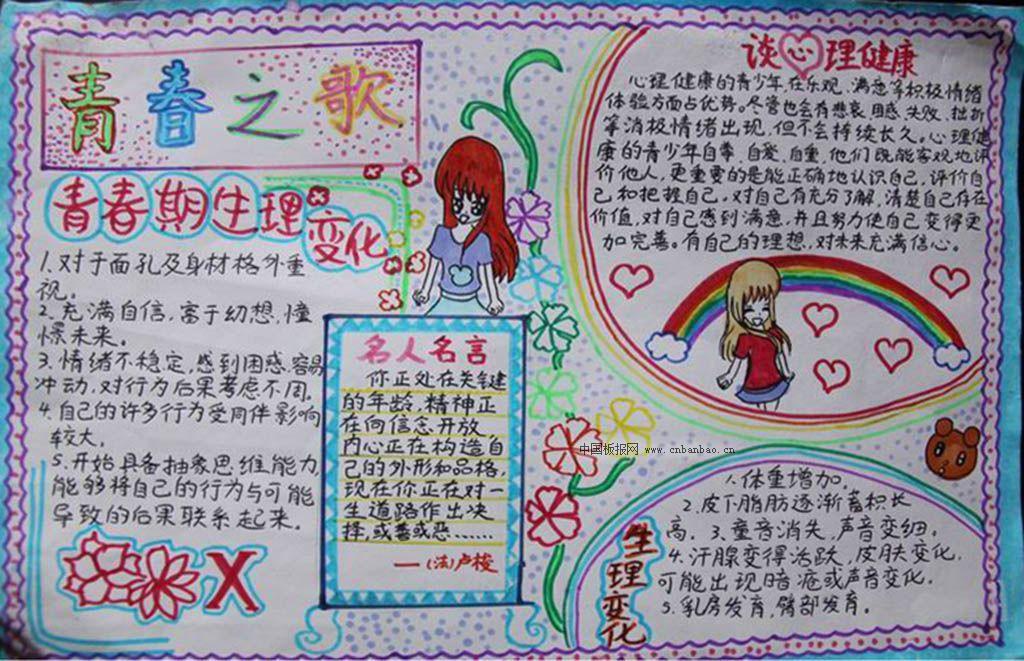 青春之歌
青春期生理变化
1.对于面孔及身材格外重
视。
2.充满自信,富于幻想,憧
憬未来。
3.情绪不稳定,感到困惑,容易
冲动,对行为后果考虑不周。
4.自己的许多行为受同伴影响
较大。
5.开始具备抽象思维能力,
能够将自己的行为与可能
导致的后果联系起来。
X
名人名言
你正处在关键
的年龄,精神正
在向信念开放,
内心正在构造自
己的外形和品格,
现在你正在对一
生道路作出决
择,或善或恶……
—(法)卢梭
谈心理健康
心理健康的青少年在乐观、满意等积极情绪
体验方面占优势。尽管也会有悲哀、困惑、失败、拙折
等消极情绪出现,但不会持续长久。心理健
康的青少年自尊、自爱、自重,他们既能客观地评
价他人,更重要的是能正确地认识自己,评价自
己和把握自己。对自己有充分了解,清楚自己存在
价值,对自己感到满意,并且努力使自己变得更
加完善。有自己的理想,对未来充满信心。
中国板报网 www.cnbanbao.cn
生理变化
1.体重增加。
2.皮下脂肪逐渐蓄积长
高。3.童音消失,声音变细。
4.汗腺变得活跃,皮肤变化,
可能出现暗疮或声音变化。
5.乳房发育,臀部发育。